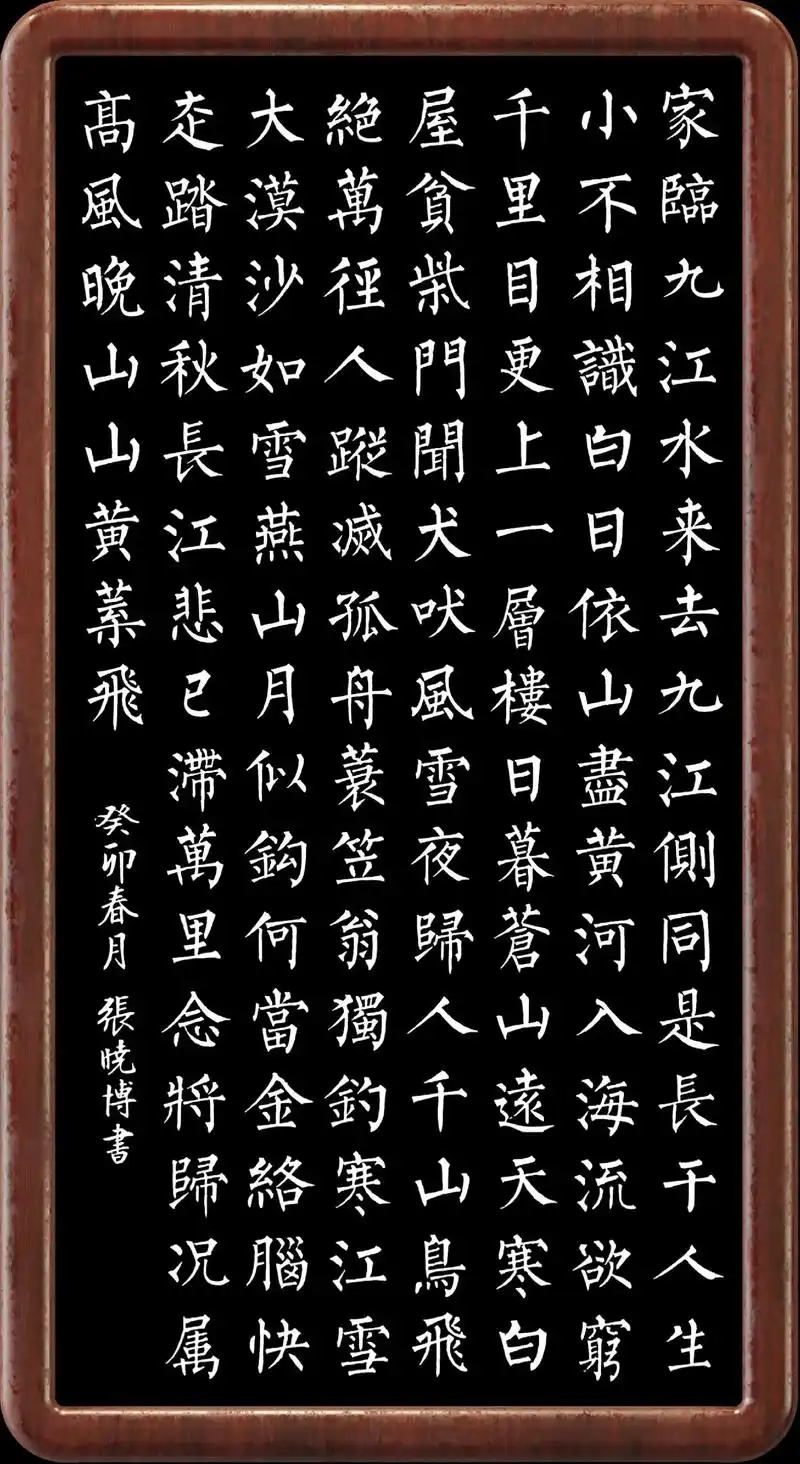 家臨九江水来去九江側同是長干人生
小不相識白日依山盡黄河入海流欲窮
千里目更上一層樓日暮蒼山遠天寒白
屋貧柴門聞犬吠風雪夜歸人千山鳥飛
絶萬徑人蹤滅孤舟蓑笠翁獨釣寒江雪
大漠沙如雪燕山月似鈎何當金絡腦快
走踏清秋長江悲已滯萬里念將歸况属
髙風晚山山黄葉飛
癸卯春月 張曉博書